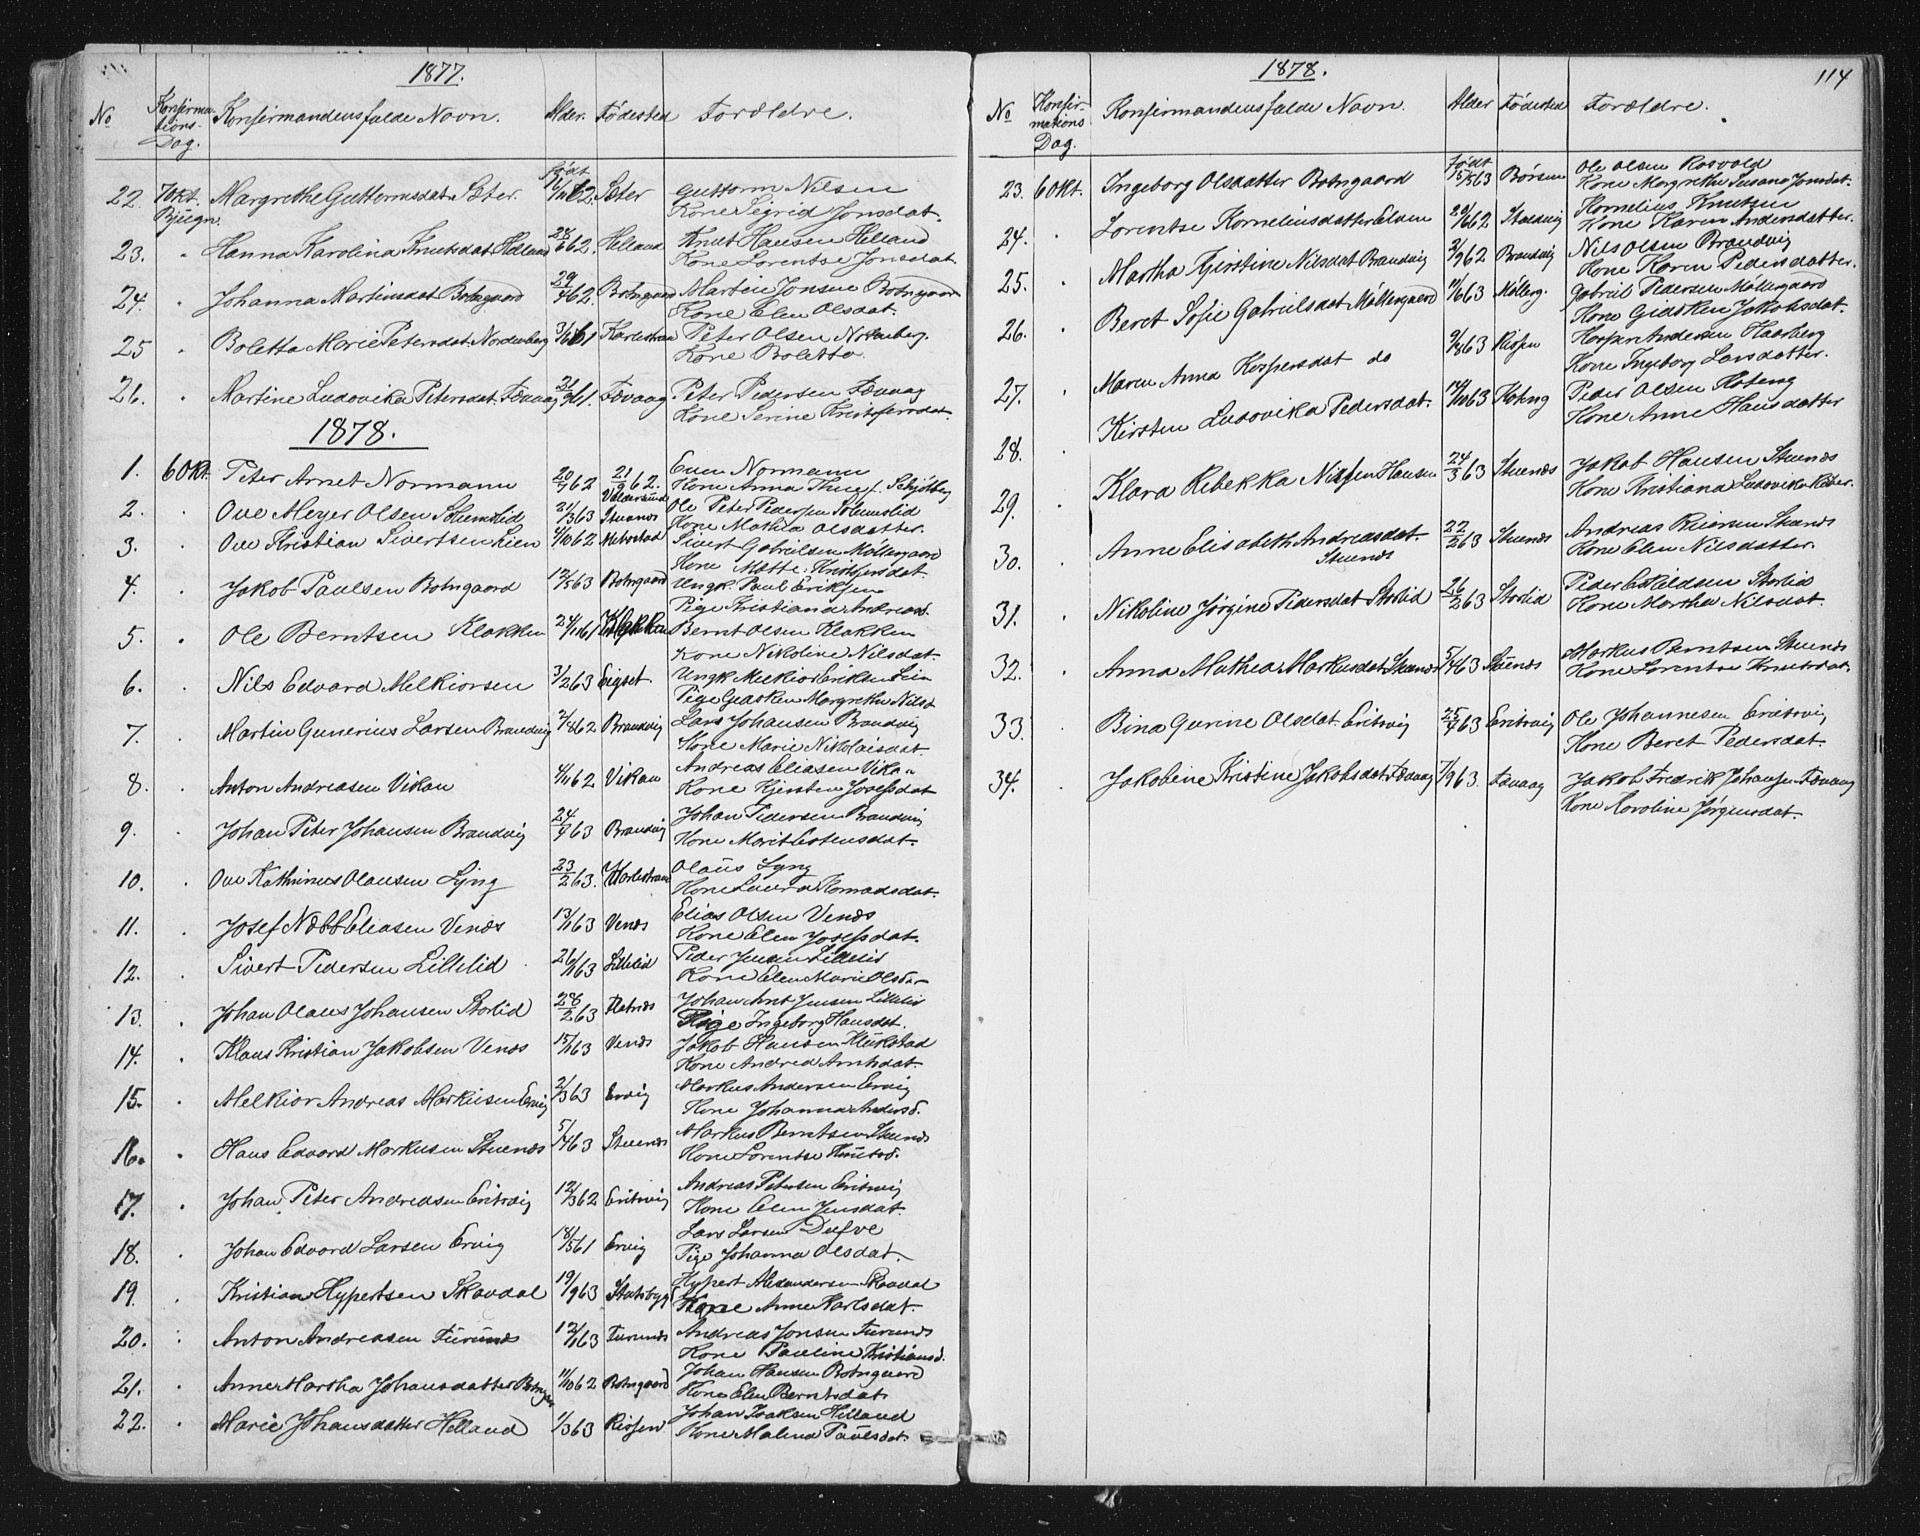 1877.
No Konfirmations-Dag. Konfirmandens fulde Navn. Alder. Fødested Forældre.
22. 7 Okt. Bjugn. Margrethe Guttormsdat. Sæter. Født 62. Sæter Guttorm Nilsen
Kone Sigrid Jonsdat.
23. " Hanna Karolina Knutsdat Helland 28/6 62. Helland Knut Hansen Helland
Kone Lorentse Jonsdat.
24. " Johanna Martinsdat Botngaard 29/4 62. Botngaard Martin Jonsen Botngaard
Kone Elen Olsdat.
25 " Boletta Marie Petersdat Nordenberg 61 Karlestrand Peter Olsen Nordenberg.
Kone Boletta.
26. " Martine Ludovika Petersdat. Fævaag 61. Fævaag Peter Pedersen Fævaag
Kone Serine Kristofersdat.
1878.
1. 6 Okt. Peter Arnet Normann 20/7 62 21/9 62. Valdersund Even Normann
Kone Anna Thug f. Schjølberg
2. " Ove Meyer Olsen Solemslid 21/3 63 Stuenæs Ole Peter Pedersen Solemslid
Kone Mathea Olsdatter.
3. " Ove Kristian Sivertsen Lien 4/10 62 Mebostad Sivert Gabrielsen Møllergaard
Kone Mætte Kristofersdat.
4. " Jakob Paulsen Botngaard 12/5 63 Botngaard Ungk. Paul Eriksen
Pige Kristiana Andreasd.
5. " Ole Berntsen Klakken 24/11 61 Klakken Bernt Olsen Klakken
Kone Nikoline Nilsdat.
6. " Nils Edvard Melkiorsen 3/2 63 Eigset. Ungk Melkior Eriksen Lien
Pige Gjasken Margrethe Nilsd
7. " Martin Gunerius Larsen Brandvig 2/8 62 Brandvig Lars Johansen Brandvig
Kone Marie Nikolaisdat.
8. " Anton Andreasen Vikan 4/11 62 Vikan Andreas Eliasen Vikan
Kone Kjersten Josefsdat
9. " Johan Peter Johansen Brandvig 24/4 63 Brandvig Johan Pedersen Brandvig
Kone Marit Estensdat.
10. " Ove Kathinus Olausen Lyng 23/2 63. Karlestrand Olaus Lyng
Kone Laura Tomasdat.
11. " Josef Næbb Eliasen Venæs 13/1 63 Venæs Elias Olsen Venæs
Kone Elen Josefsdat.
12. " Sivert Pedersen Lillelid 26/1 63 Lillelid Peder Jensen Lillelid
Kone Elen Marie Olsd.
13. " Johan Olaus Johansen Storlid 28/2 63 Johan Arnt Jensen Lillelid
Pige Ingeborg Hansdat.
14. " Klaus Kristian Jakobsen Venæs 15/1 63 Venæs Jakob Hansen
Kone Andrea Arntsdat.
15. " Melkior Andreas Markusen Ervig 2/3 63 Ervig Markus Andersen Ervig
Kone Johanna Andersd.
16. " Hans Edvard Markusen Stuenæs 5/4 63 Stuenæs Markus Berntsen Stuenæs
Kone Lorentse Knutsd.
17. " Johan Peter Andreasen Eritsvig 12/3 62 Eritsvig Andreas Petersen Eritsvig
Kone Elen Jensdat.
18. " Johan Edvard Larsen Ervig 18/5 61 Ervig Lars Larsen
Pige Johanna Olsdat.
19. " Kristian Hypertsen Skavdal 19/9 63 Stadsbygd Hypert Alexandersen Skavdal
Kone Anne Karlsdat.
20. " Anton Andreasen Furunæs 12/1 63 Furunæs Andreas Jonsen Furunæs
Kone Pauline Kristiansd.
21. " Anne Martha Johansdatter Botngaard 11/10 62 Botngaard Johan Hansen Botngaard
Kone Elen Berntsdat.
22. " Marie Johansdatter Helland 1/3 63 Rissen Johan Isaksen Helland
Kone Malena Paulsdat.
1878.
114
No Konfirmations Dag. Konfirmandens fulde Navn. Alder Fødested Forældre.
23. 6 Okt. Ingeborg Olsdatter Botngaard Født 15/5 63 Børsen Ole Olsen Rosvold
Kone Margrethe Susana Jonsdat.
24. " Lorentse Korneliusdatter 29/6 62 Kornelius Knutsen
Kone Karen Andersdatter.
25. " Martha Kjerstine Nilsdat Brandvig 2/9 62 Brandvig Nils Olsen Brandvig
Kone Karen Pedersdatter.
26. " Beret Sofie Gabrielsdat Møllergaard 11/6 63 Møllerg. Gabriel Pedersen Møllergaard
Kone Gidsken Jakobsdat.
27. " Maren Anna Kaspersdat do 9/8 63 Rissen Kasper Andersen Haarberg
Kone Ingeborg Larsdatter.
28. " Kirsten Ludovika Pedersdat. 14/10 63 Koteng Peder Olsen Koteng
Kone Anne Hansdatter
29. " Klara Rebekka Nilsen Hansen 24/3 63 Stuenæs Jakob Hansen Stuenæs
Kone Kristiana Ludovika
30. " Anne Elisabeth Andreasdat. Stuenæs 22/2 63 Stuenæs Andreas Peiersen Stuenæs
Kone Elen Nilsdatter.
31. " Nikoline Jørgine Pedersdat Storlid 26/2 63 Storlid Peder Eskildsen Storlid
Kone Martha Nilsdat.
32. " Anna Mathea Markusdat Stuenæs 5/4 63 Stuenæs Markus Berntsen Stuenæs
Kone Lorentse Knutsdat.
33. " Bina Gurine Olsdat. Eritsvig 25/4 63 Eritsvig Ole Johannesen Eritsvig
Kone Beret Pedersdat.
34. " Jakobine Kristine Jakobsdat. Fævaag 7/9 63. Fævaag Jakob Fredrik Johansen Fævaag
Kone Karoline Jørgensdat.